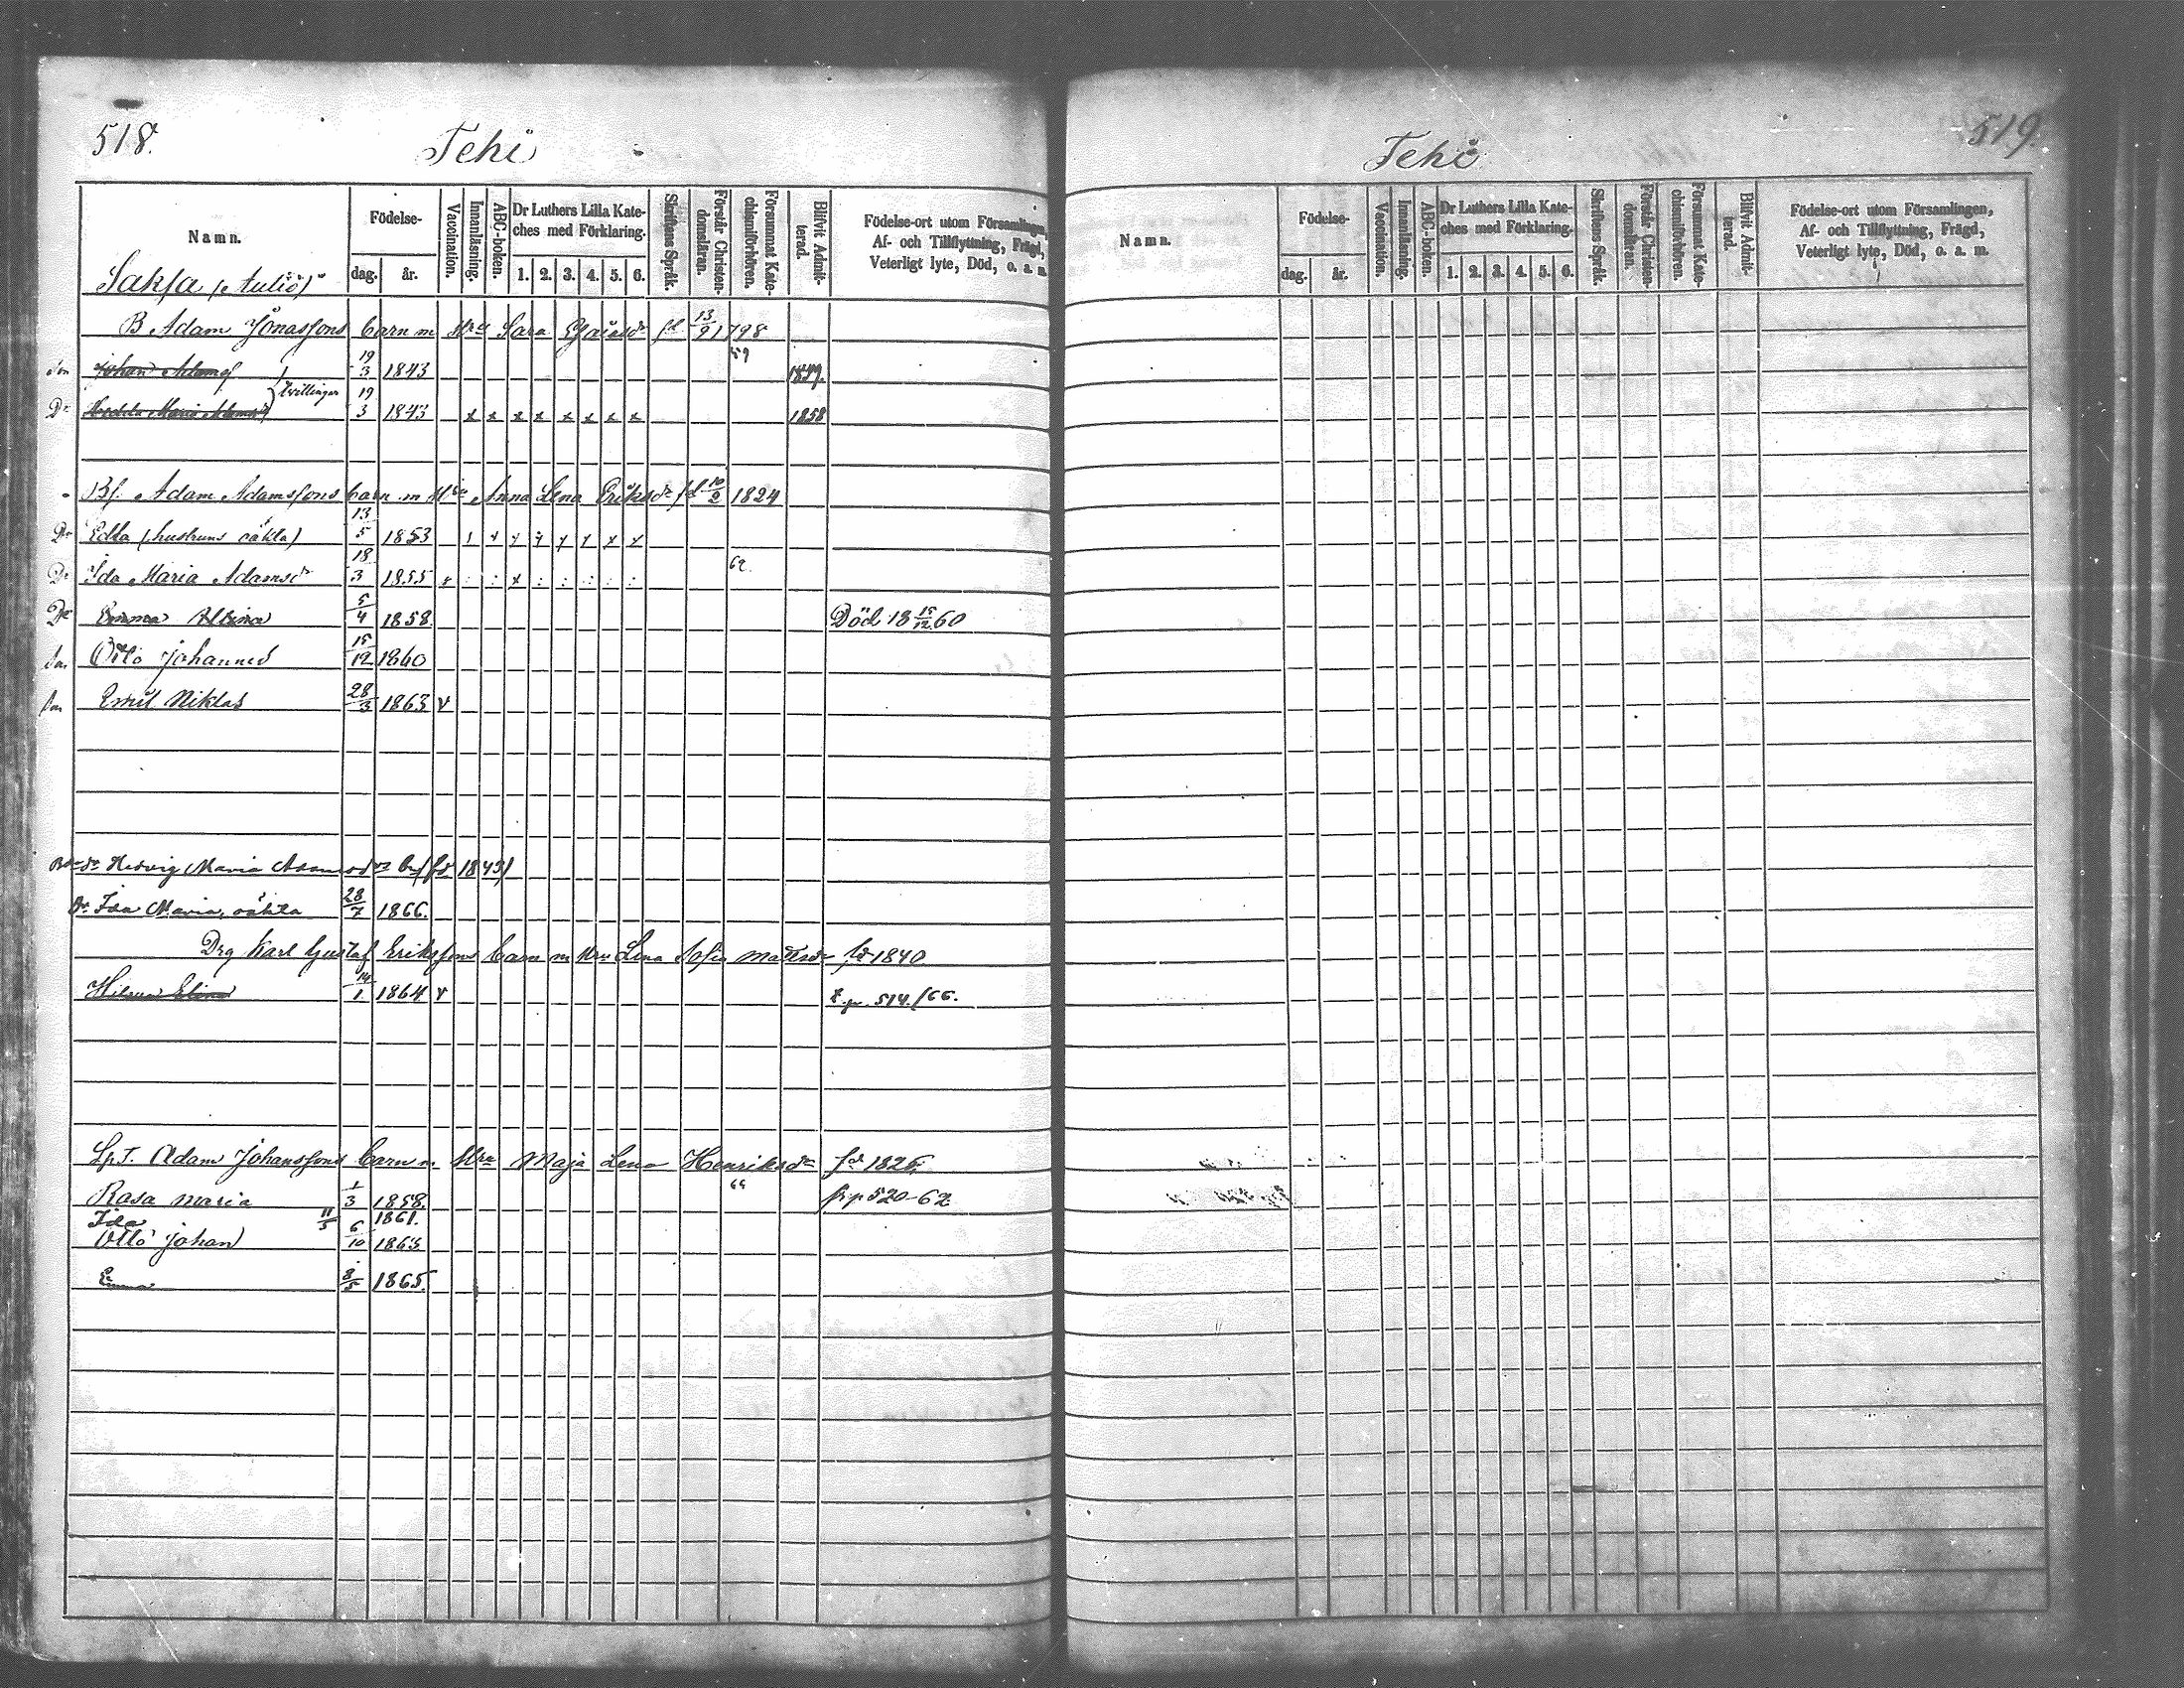 518.
Tehi
Namn.
Födelse-
dag.
år.
Vaccination.
Innanläsning.
ABC-boken.
Dr Luthers Lilla Kate-
ches med Förklaring.
1. 2. 3. 4. 5. 6.
Skriftens Språk.
Förstår Christen-
domsläran.
Försummat Kate-
chismiförhören.
Blifvit Admit-
terad.
Födelse-ort utom Församlingen,
Af- och Tillflyttning, Frägd,
Veterligt lyte, Död, o. a. m.
Saksa (Auliö)
B Adam Jonassons barn m Hru Sara Esaiasdr fd 13/9 1798
Son Johan Adamsf 19/3 1843 59 1859.
Tvillingar
Dr Hedda Maria Adamsdr 19/3 1843 x x x x x x x x 1858
Bf. Adam Adamssons barn m Hru Anna Lena Eriksdr fd 10/2 1824
Dr Edla (hustruns oäkta) 13/5 1853
Dr Ida Maria Adamsdr 18/3 1855 62
Dr Emma Albina 5/4 1858. Död 18 15/12 60
Son Otto Johannes 15/12 1860
Son Emil Niklas 28/3 1863 v
Hedvig Maria Adamsdrs b (fd 1843)
Dr Ida Maria, oäkta 28/7 1866.
Drg Karl Gustaf Erikssons barn m Hru Lena Sofia Mattsdr fd 1840
Hilma Elina 14/1 1864 v t. p. 514./66.
Spt. Adam Johanssons barn m Hru Maja Lena Henriksdr fd 1826.
Rosa Maria 1/3 1858. 66 fr p 520-62
Ida 11/5 1861.
Otto Johan 6/10 1863
Emma 8/5 1865.
519.
Tehi
Namn.
Födelse-
dag.
år.
Vaccination.
Innanläsning.
ABC-boken.
Dr Luthers Lilla Kate-
ches med Förklaring.
1. 2. 3. 4. 5. 6.
Skriftens Språk.
Förstår Christen-
domsläran.
Försummat Kate-
chismiförhören.
Blifvit Admit-
terad.
Födelse-ort utom Församlingen,
Af- och Tillflyttning, Frägd,
Veterligt lyte, Död, o. a. m.